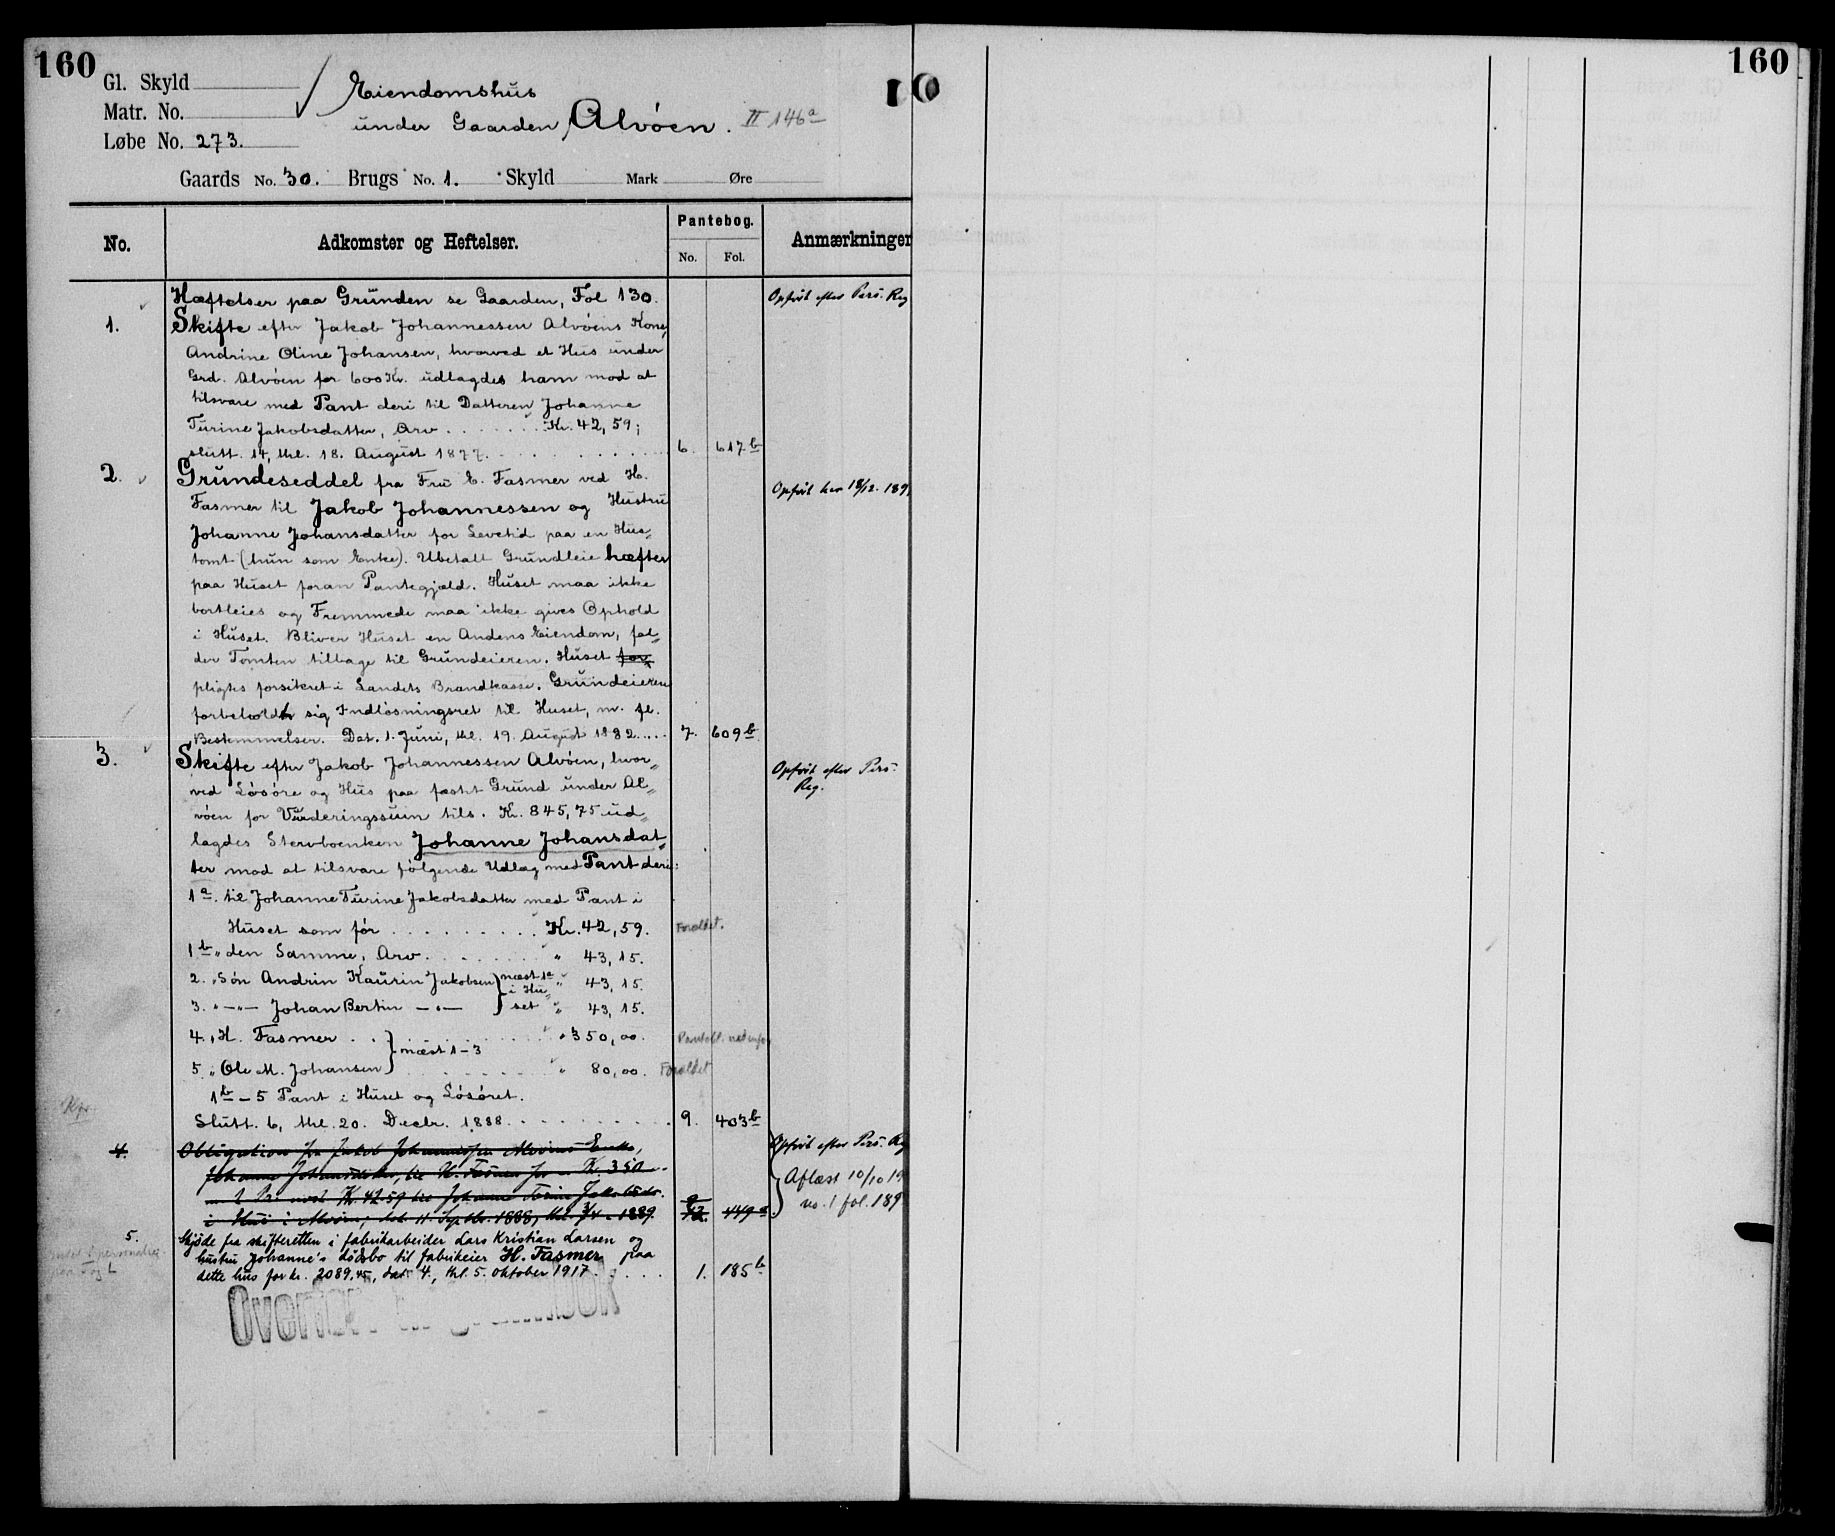 160
160
Gl. Skyld
Matr. No.
Løbe No. 273.
Eiendomshus
under Gaarden Alvöen. II 146a
Gaards No. 30. Brugs No. 1. Skyld Mark Øre
No.
Adkomster og Heftelser.
Pantebog.
No. Fol.
Anmærkninger
Hæftelser paa Grunden se Gaarden, Fol 130.
Opfört efter Pers. Reg
1. Skifte efter Jakob Johannessen Alvöens Kone,
Andrine Oline Johansen, hvorved et Hus under
Grd. Alvöen for 600 Kr. udlagdes ham mod at
tilsvare med Pant deri til Datteren Johanne
Turine Jakobsdatter, Arv . . . . . . . Kr. 42,59;
slutt. 14, thl. 18. August 1877. . . . . . . . . 6. 617b
2. Grundeseddel fra Fru C. Fasmer ved H.
Opfört her 18/12. 189
Fasmer til Jakob Johannessen og Hustru
Johanne Johansdatter for Levetid paa en Hus„
tomt (hun som Enke). Ubetalt Grundleie hæfter
paa Huset foran Pantegjæld. Huset maa ikke
bortleies og Fremmede maa ikke gives Ophold
i Huset. Bliver Huset en Andens Eiendom, fal„
der Tomten tilbage til Grundeieren. Huset for„
pligtes forsikret i Landets Brandkasse. Grundeieren
forbeholdt sig Indlösningsret til Huset, m. fl.
Bestemmelser. Dat. 1. Juni, thl. 19. August 1882 . . . . 7. 609b
3. Skifte efter Jakob Johannessen Alvöen, hvor„
Opfört efter Pers.
Reg.
ved Lösöre og Hus paa fæstet Grund under Al„
vöen for Vurderingssum tils. Kr. 845,75 ud„
lagdes Stervboenken Johanne Johansdat„
ter mod at tilsvare fölgende Udlæg med Pant deri:
1a. til Johanne Turine Jakobsdatter med Pant i
Huset som för . . . . . . . . . . Kr. 42,59. Foreldet.
1b „ den Samme, Arv . . . . . . . . „ 43,15.
2. „ Sön Andrin Kaurin Jakobsen } næst 1a „ 43,15.
i Hu„
3. „ —„— Johan Bertin —„— } set „ 43,15.
4. „ H. Fasmer . . . . . . . . . . . „ 350,00.
} næst 1-3
5. „ Ole M. Johansen . . . . . . . . „ 80,00. Foreldet
1b – 5 Pant i Huset og Lösöret.
Slutt. 6, thl. 20. Decbr. 1888. . . . . . . . . 9. 403b
4. Obligation fra Jakob Johannessen Alvöens Enke,
Opfört efter Pers. Reg
Johanne Johansdatter, til H. Fasmer for Kr. 350
Aflæst 10/10 19
Kr. 42.59 til Johanne Turine Jakobsdr.
no. 1 fol. 189
i Hus i Alvöen, dat. 11. Septbr. 1888, thl. 3/4 1889. 449a
5. Skjöde fra skifteretten i fabrikarbeider Lars Kristian Larsen og
hustru Johanne's dödsbo til fabrikeier H. Fasmer paa
dette hus for kr. 2089.45, dat. 4., thl. 5. oktober 1917. . . . . . 1. 185b